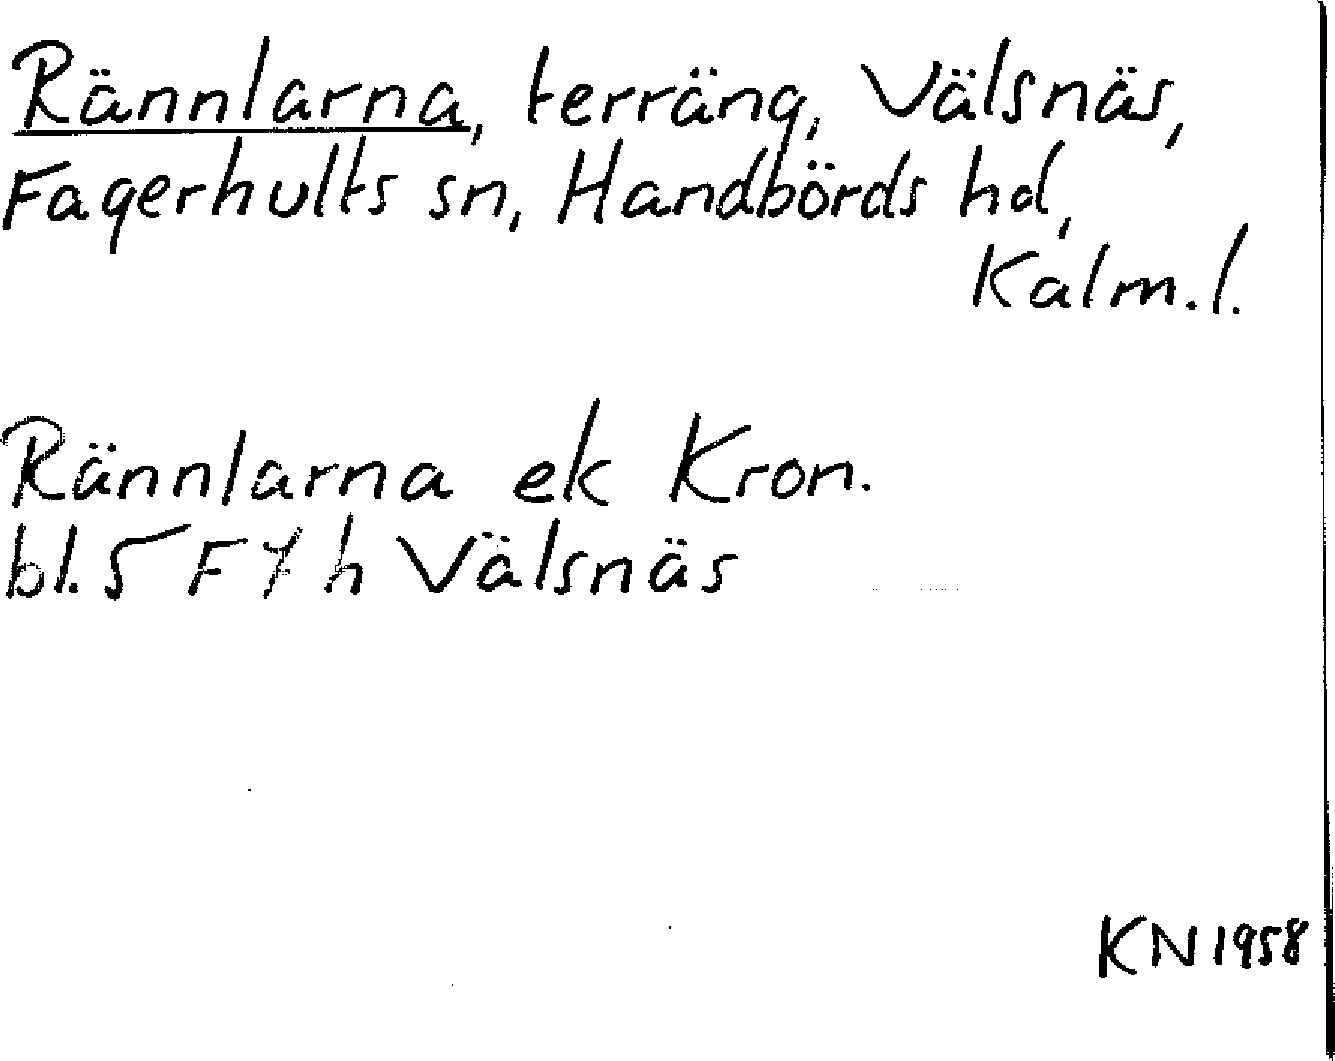 Rännlarna, terräng, Välsnäs,
Fagerhults sn, Handbörds hd,
Kalm.l.
Rännlarna ek Kron.
bl. 5 F 7 h Välsnäs
KN 1958